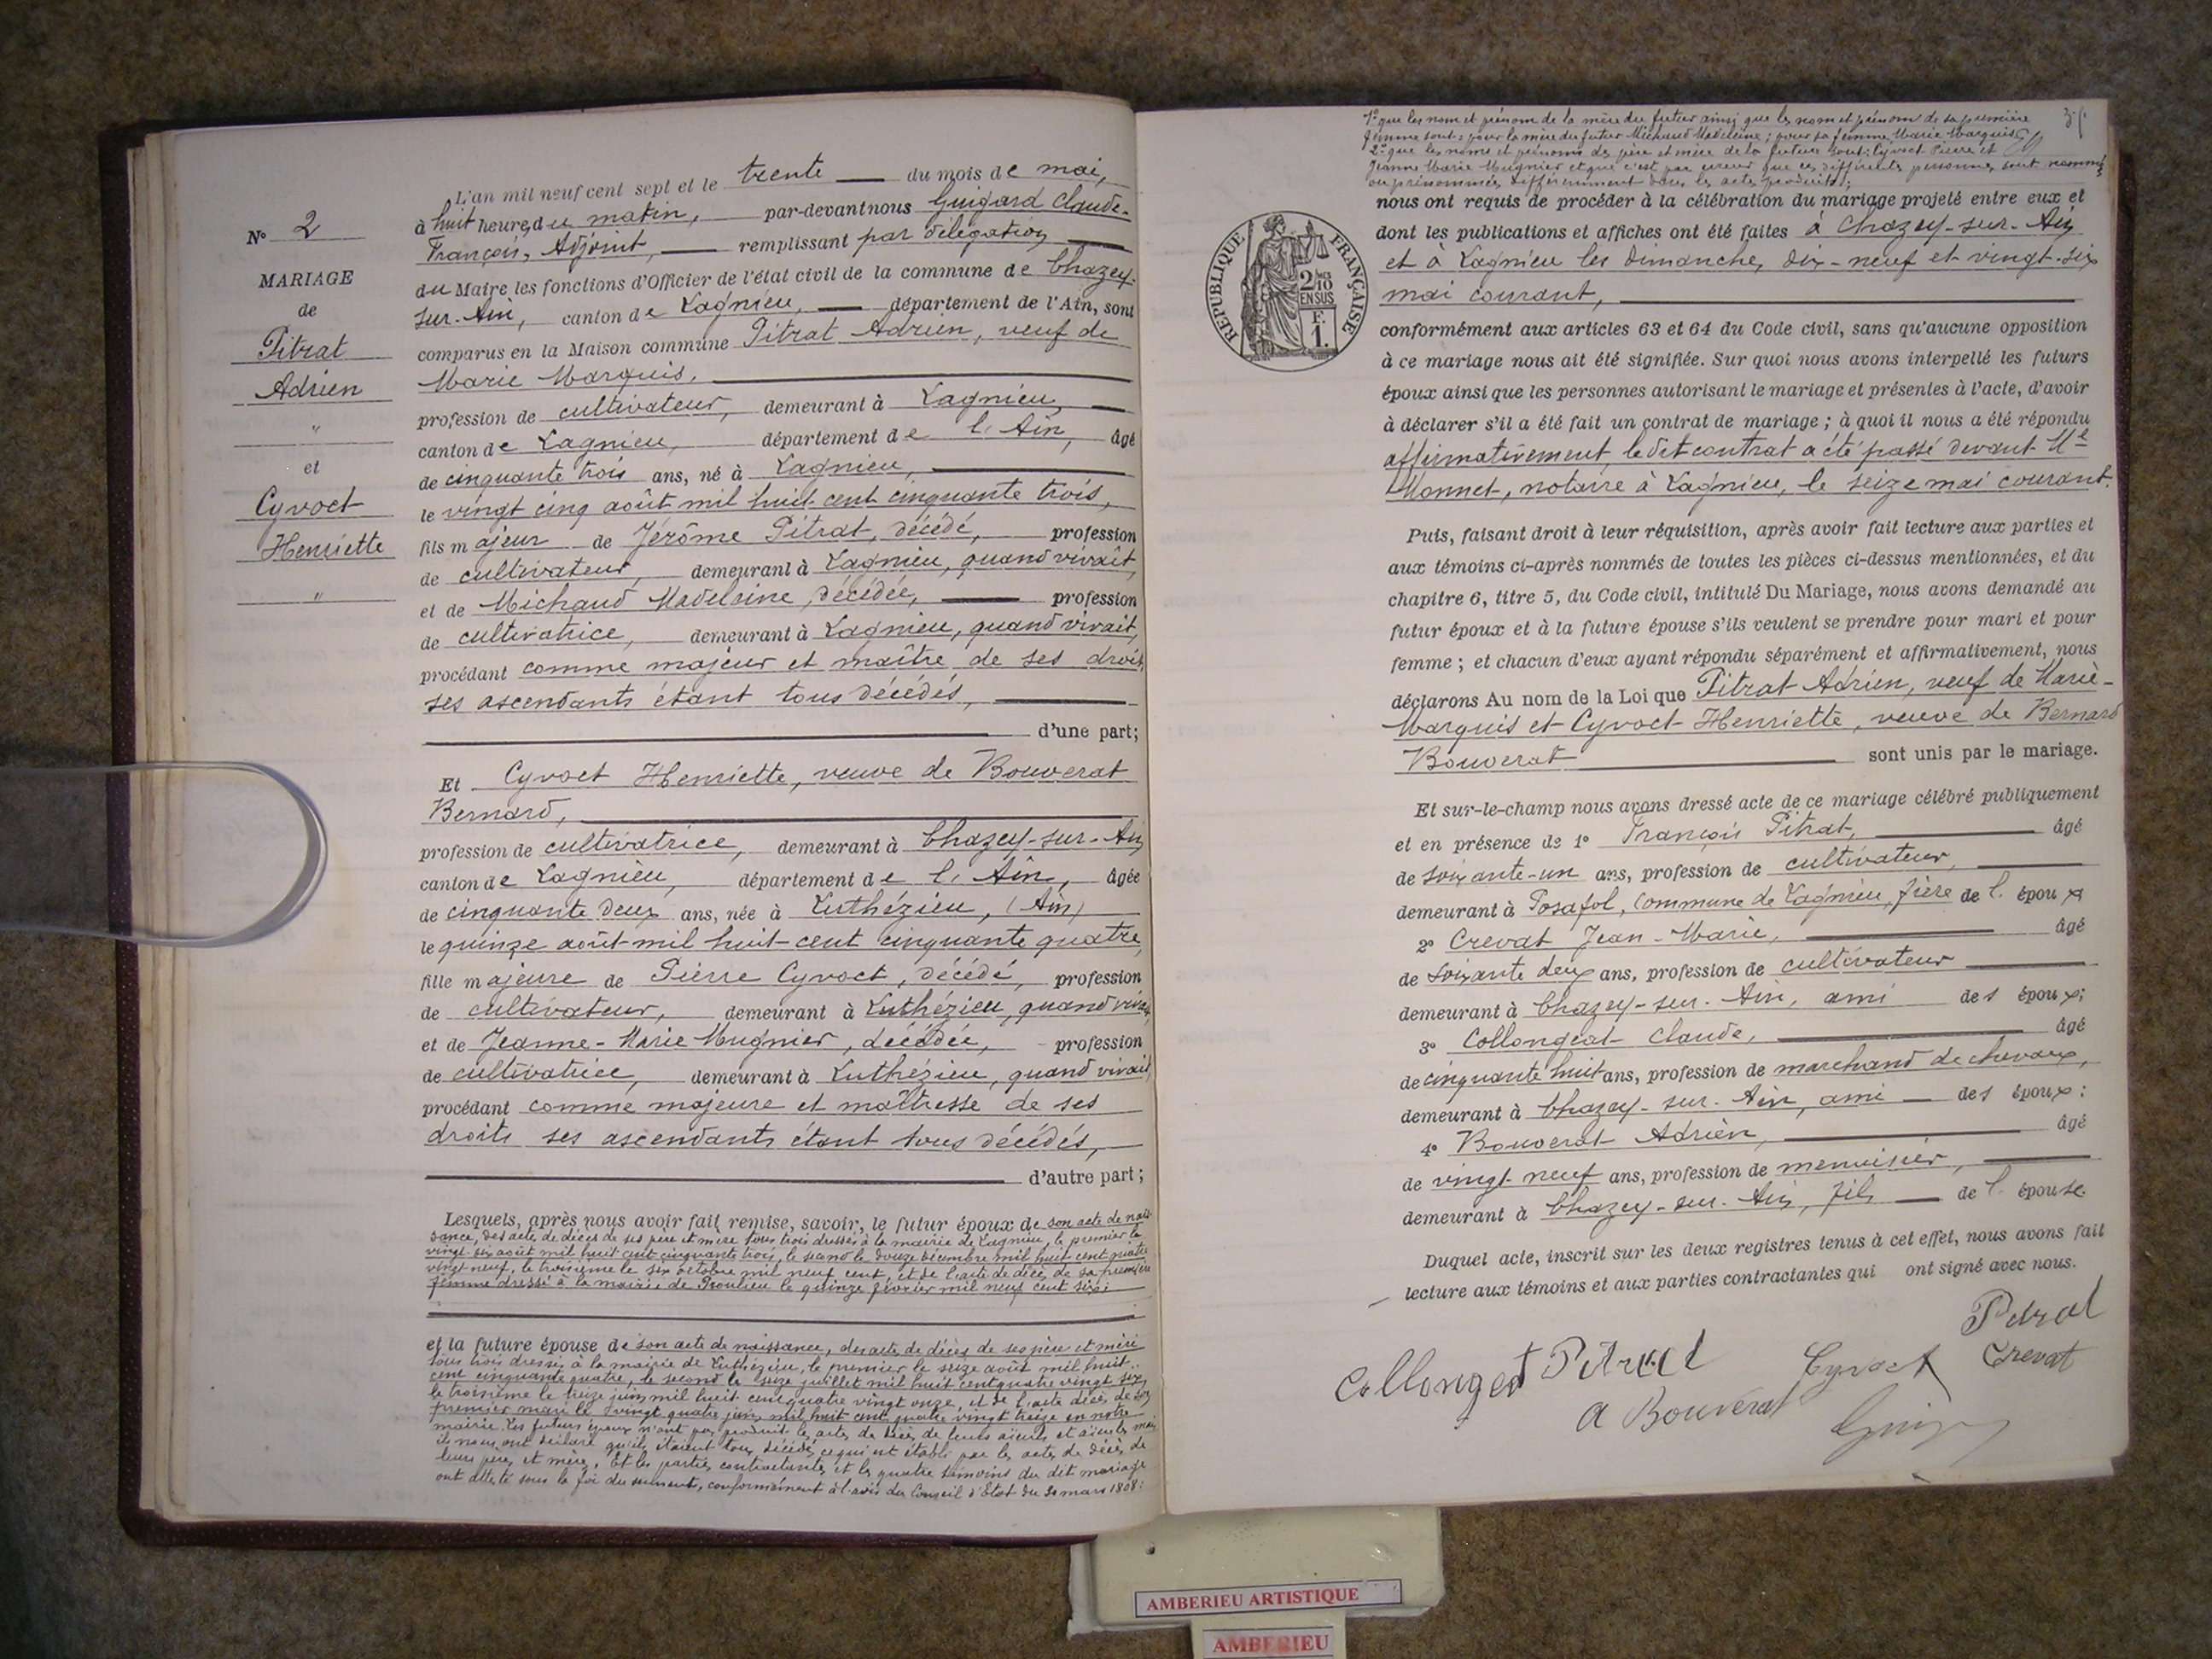 N° 2
MARIAGE
de
Pitrat
Adrien
"
et
Cyvoct
Henriette
"
L'an mil neuf cent sept et le trente du mois de mai,
à huit heures du matin, par-devant nous Guigard Claude-
François, Adjoint, remplissant par délégation
du Maire les fonctions d'Officier de l'état civil de la commune de Chazey-
sur-Ain, canton de Lagnieu, département de l'Ain, sont
comparus en la Maison commune Pitrat Adrien, veuf de
Marie Marquis,
profession de cultivateur, demeurant à Lagnieu,
canton de Lagnieu, département de l'Ain, âgé
de cinquante trois ans, né à Lagnieu,
le vingt cinq août mil huit cent cinquante trois,
fils majeur de Jérôme Pitrat, décédé, profession
de cultivateur, demeurant à Lagnieu, quand vivait,
et de Michaud Madeleine, décédée, profession
de cultivatrice, demeurant à Lagnieu, quand vivait,
procédant comme majeur et maître de ses droits,
ses ascendants étant tous décédés,
d'une part;
Et Cyvoct Henriette, veuve de Bouverat
Bernard,
profession de cultivatrice, demeurant à Chazey-sur-Ain,
canton de Lagnieu, département de l'Ain, âgée
de cinquante deux ans, née à Luthézieu, (Ain)
le quinze août mil huit-cent cinquante quatre,
fille majeure de Pierre Cyvoct, décédé, profession
de cultivateur, demeurant à Luthézieu, quand vivait,
et de Jeanne-Marie Mugnier, décédée, profession
de cultivatrice, demeurant à Luthézieu, quand vivait,
procédant comme majeure et maîtresse de ses
droits ses ascendants étant tous décédés,
d'autre part;
Lesquels, après nous avoir fait remise, savoir, le futur époux de son acte de nais-
sance, des actes de décès de ses père et mère tous trois dressés à la mairie de Lagnieu, le premier le
vingt-six août mil huit cent cinquante trois, le second le douze décembre mil huit cent quatre
vingt neuf, le troisième le six octobre mil neuf cent, et de l'acte de décès de sa première
femme dressé à la mairie de Proulieu le quinze février mil neuf cent six;
et la future épouse de son acte de naissance, des actes de décès de ses père et mère
tous trois dressés à la mairie de Luthézieu, le premier le seize août mil huit
cent cinquante quatre, le second le seize juillet mil huit cent quatre vingt six,
le troisième le treize juin mil huit cent quatre vingt onze, et de l'acte décès de son
premier mari le vingt quatre juin mil huit cent quatre vingt treize en notre
mairie. Les futurs époux n'ont pas produit les actes de décès de leurs aïeuls et aïeules mais
ils nous ont déclaré qu'ils étaient tous décédés ce qui est établi par les actes de décès de
leurs pères et mères. Et les parties contractantes et les quatre témoins du dit mariage
ont attesté sous la foi du serment, conformément à l'avis du Conseil d'Etat du 30 mars 1808:
1° que les nom et prénom de la mère du futur ainsi que les nom et prénom de sa première
femme sont: pour la mère du futur Michaud Madeleine; pour sa femme Marie Marquis
2° que les noms et prénoms des père et mère de la future sont: Cyvoct Pierre et
Jeanne Marie Mugnier et que c'est par erreur que ces différentes personnes sont nommées
ou prénommées différemment dans les actes produits;
nous ont requis de procéder à la célébration du mariage projeté entre eux et
dont les publications et affiches ont été faites à Chazey-sur-Ain
et à Lagnieu les dimanche, dix-neuf et vingt-six
mai courant,
RÉPUBLIQUE FRANÇAISE
2/10
EN SUS
F.
1.
conformément aux articles 63 et 64 du Code civil, sans qu'aucune opposition
à ce mariage nous ait été signifiée. Sur quoi nous avons interpellé les futurs
époux ainsi que les personnes autorisant le mariage et présentes à l'acte, d'avoir
à déclarer s'il a été fait un contrat de mariage; à quoi il nous a été répondu
affirmativement, le dit contrat a été passé devant Me
Monnet, notaire à Lagnieu, le seize mai courant.
Puis, faisant droit à leur réquisition, après avoir fait lecture aux parties et
aux témoins ci-après nommés de toutes les pièces ci-dessus mentionnées, et du
chapitre 6, titre 5, du Code civil, intitulé Du Mariage, nous avons demandé au
futur époux et à la future épouse s'ils veulent se prendre pour mari et pour
femme; et chacun d'eux ayant répondu séparément et affirmativement, nous
déclarons Au nom de la Loi que Pitrat Adrien, veuf de Marie-
Marquis et Cyvoct Henriette, veuve de Bernard
Bouverat sont unis par le mariage.
Et sur-le-champ nous avons dressé acte de ce mariage célébré publiquement
et en présence de 1° François Pitrat, âgé
de soixante-un ans, profession de cultivateur,
demeurant à Posafol, commune de Lagnieu, frère de l'époux
2° Crevat Jean-Marie, âgé
de soixante deux ans, profession de cultivateur
demeurant à Chazey-sur-Ain, ami des époux;
3° Collongeat Claude, âgé
de cinquante huit ans, profession de marchand de chevaux,
demeurant à Chazey-sur-Ain, ami des époux:
4° Bouverat Adrien, âgé
de vingt-neuf ans, profession de menuisier,
demeurant à Chazey-sur-Ain, fils de l'épouse.
Duquel acte, inscrit sur les deux registres tenus à cet effet, nous avons fait
lecture aux témoins et aux parties contractantes qui ont signé avec nous.
Pitrat
Collongeat Pitrat Cyvoct Crevat
A Bouverat
AMBERIEU ARTISTIQUE
AMBERIEU